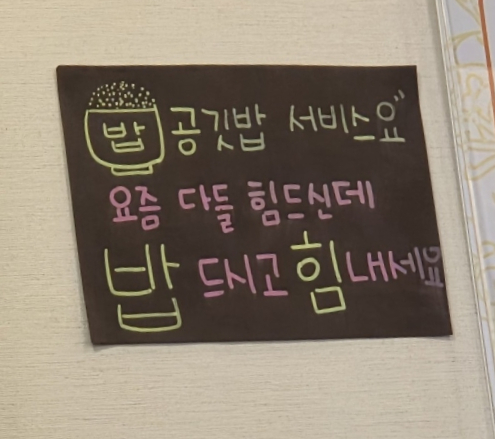 밥 공깃밥 서비스요"
요즘 다들 힘드신데
밥 드시고 힘내세요